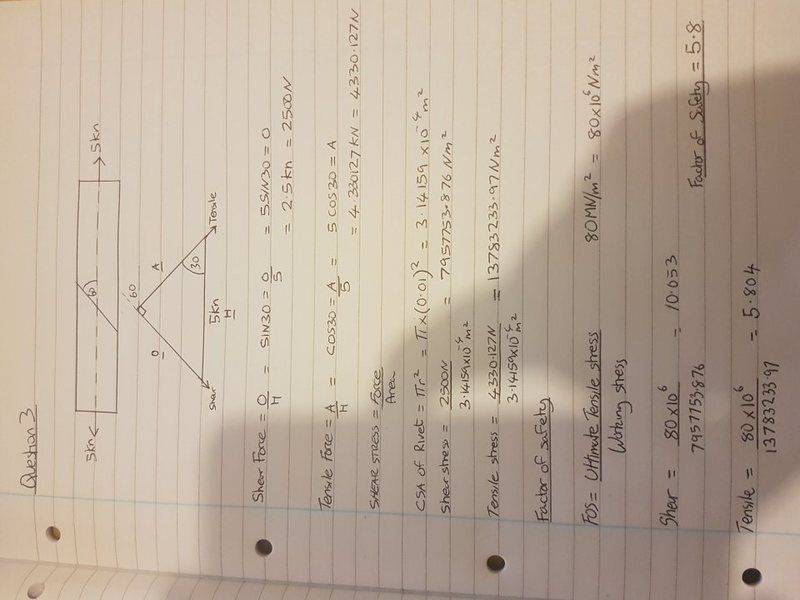 Question 3
5kn
5kn
60
60
O
A
30
Shear
5kn
H
Tensile
Shear Force = O/H = SIN30 = O/5 = 5SIN30 = O
= 2.5kn = 2500N
Tensile Force = A/H = COS30 = A/5 = 5COS30 = A
= 4.330127KN = 4330.127N
SHEAR STRESS = Force/Area
CSA of Rivet = πr² = π×(0.01)² = 3.14159×10⁻⁴m²
Shear stress = 2500N/3.14159×10⁻⁴m² = 7957753.876Nm²
Tensile stress = 4330.127N/3.14159×10⁻⁴m² = 13783233.97Nm²
Factor of safety
FOS = Ultimate Tensile stress/Working stress 80MN/m² = 80×10⁶Nm²
Shear = 80×10⁶/7957753.876 = 10.053
Factor of Safety = 5.8
Tensile = 80×10⁶/13783233.97 = 5.804